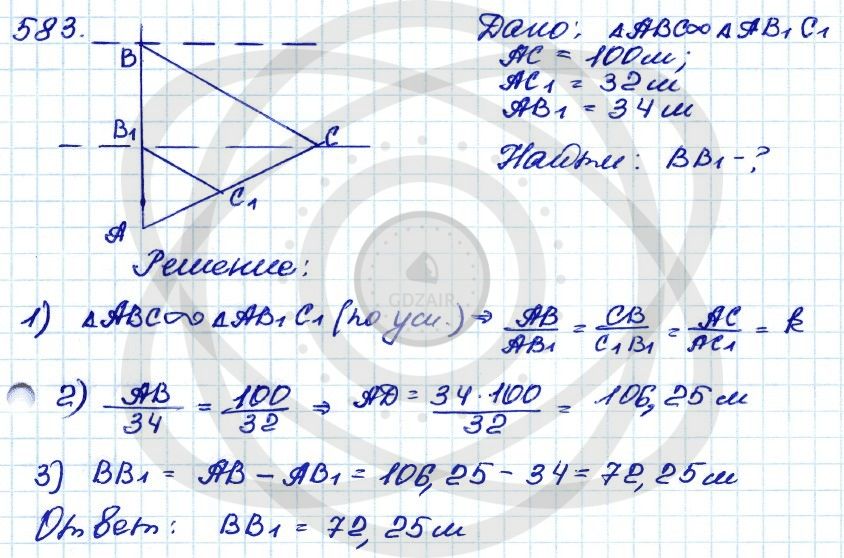 583.
B
B₁
C
C₁
A
Дано: ΔABC∞ΔAB₁C₁
AC = 100м;
AC₁ = 32м
AB₁ = 34м
Найти: BB₁ - ?
Решение:
1) ΔABC∞ΔAB₁C₁ (по усл.) ⇒ AB/AB₁ = CB/C₁B₁ = AC/AC₁ = k
2) AB/34 = 100/32 ⇒ AD = 34·100/32 = 106,25м
3) BB₁ = AB - AB₁ = 106,25 - 34 = 72,25м
Ответ: BB₁ = 72,25м
GDZAIR